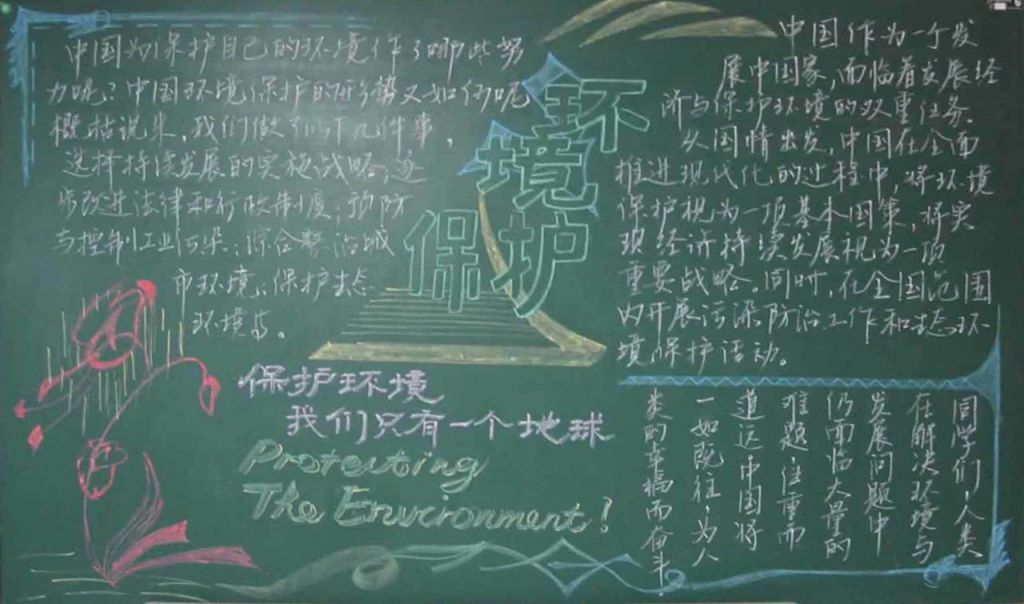 中国为保护自己的环境作了哪些努
力呢?中国环境保护的形势又如何呢
概括说来,我们做了如下几件事,
选择持续发展的实施战略,逐
步改进法律和行政制度;预防
与控制工业污染;综合整治城
市环境;保护生态
环境等。
环
境
保护
中国作为一个发
展中国家,面临着发展经
济与保护环境的双重任务.
从国情出发,中国在全面
推进现代化的过程中,将环境
保护视为一项基本国策,将实
现经济持续发展视为一项
重要战略.同时,在全国范围
内开展污染防治工作和生态环
境保护活动。
保护环境
我们只有一个地球
Protecting
The Environment!
同学们,人类
在解决环境与
发展问题中
仍面临大量的
难题,任重而
道远,中国将
一如既往,为人
类的幸福而奋斗